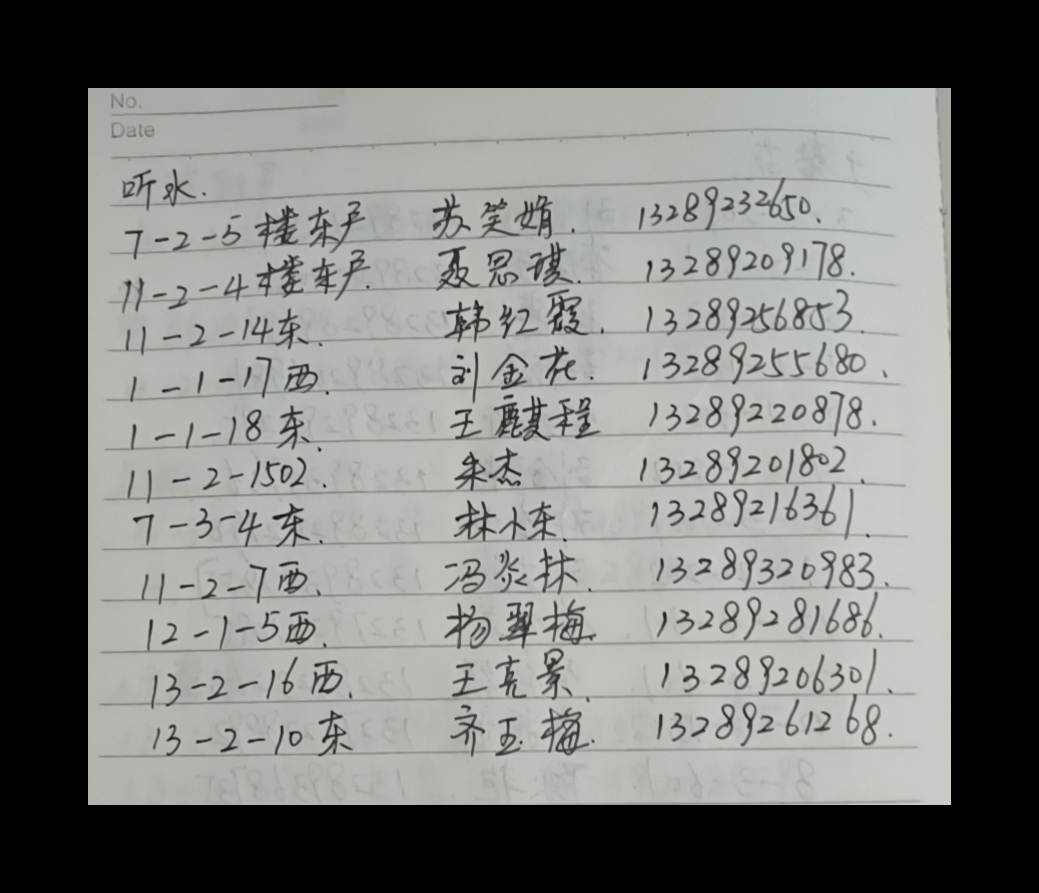 No.
Date
听水.
7-2-5楼东户 苏笑娟. 13289232650.
11-2-4楼东户. 聂思琪. 13289209178.
11-2-14东. 韩红霞. 13289256853.
1-1-17西. 刘金花. 13289255680.
1-1-18东. 王麒程 13289220878.
11-2-1502. 朱杰 13289201802.
7-3-4东. 林小东. 13289216361.
11-2-7西. 冯炎林. 13289320983.
12-1-5西. 杨翠梅. 13289281686.
13-2-16西. 王亮景. 13289206301.
13-2-10东 齐玉梅. 13289261268.